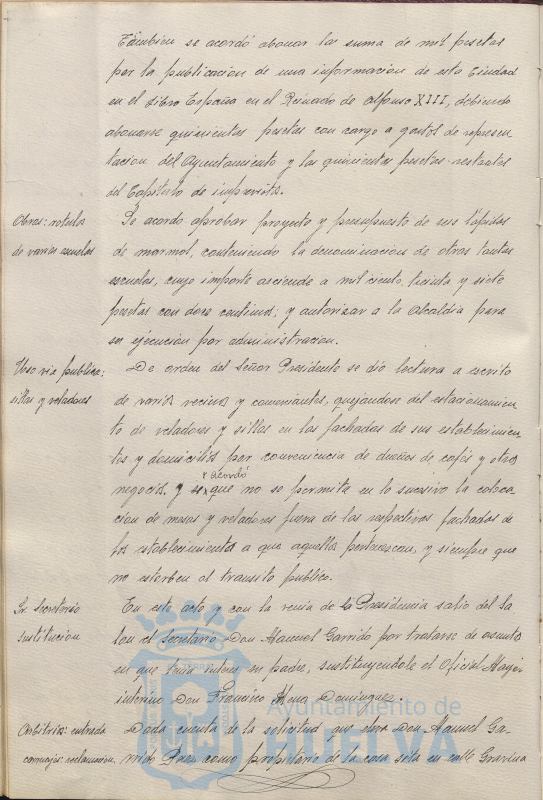 También se acordó abonar la suma de mil pesetas
por la publicación de una información de esta Ciudad
en el Libro España en el Reinado de Alfonso XIII, debiendo
abonarse quinientas pesetas con cargo a gastos de represen
tación del Ayuntamiento y las quinientas pesetas restantes
del Capítulo de imprevistos.
Obras: rotulos
de varias escuelas
Se acordó aprobar proyecto y presupuesto de seis lápidas
de marmol, conteniendo la denominación de otras tantas
escuelas, cuyo importe asciende a mil ciento treinta y siete
pesetas con doce centimos; y autorizar a la Alcaldía para
su ejecución por administración.
Uso via publica:
sillas y veladores
De orden del Señor Presidente se dió lectura a escrito
de varios vecinos y comerciantes, quejandose del estacionamien
to de veladores y sillas en las fachadas de sus establecimien
tos y domicilios por conveniencia de dueños de cafés y otros
negocios, y se acordó que no se permita en lo sucesivo la coloca
ción de mesas y veladores fuera de las respectivas fachadas de
los establecimientos a que aquellos pertenezcan, y siempre que
no estorben al transito publico.
Sr. Secretario
Sustitución
En este acto y con la venia de la Presidencia salió del Sa
lon el Secretario Don Manuel Garrido por tratarse de asunto
en que tenía interes su padre, sustituyendole el Oficial Mayor
interino Don Francisco Mena Dominguez.
Arbitrios: entrada
carruajes: reclamación.
Dada cuenta de la solicitud que eleva Don Manuel Ga-
rrido Perez como propietario de la casa sita en calle Gravina
Ayuntamiento de
HUELVA